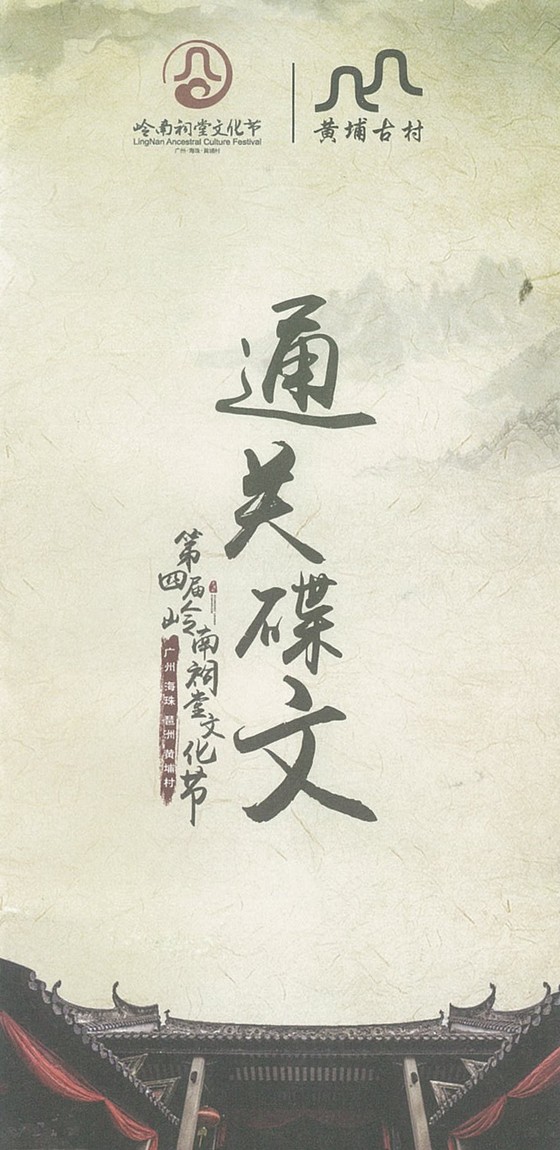 岭南祠堂文化节
LingNan Ancestral Culture Festival
广州·海珠·黄埔村
黄埔古村
通关碟文
第四届岭南祠堂文化节
广州 海珠 琶洲 黄埔村